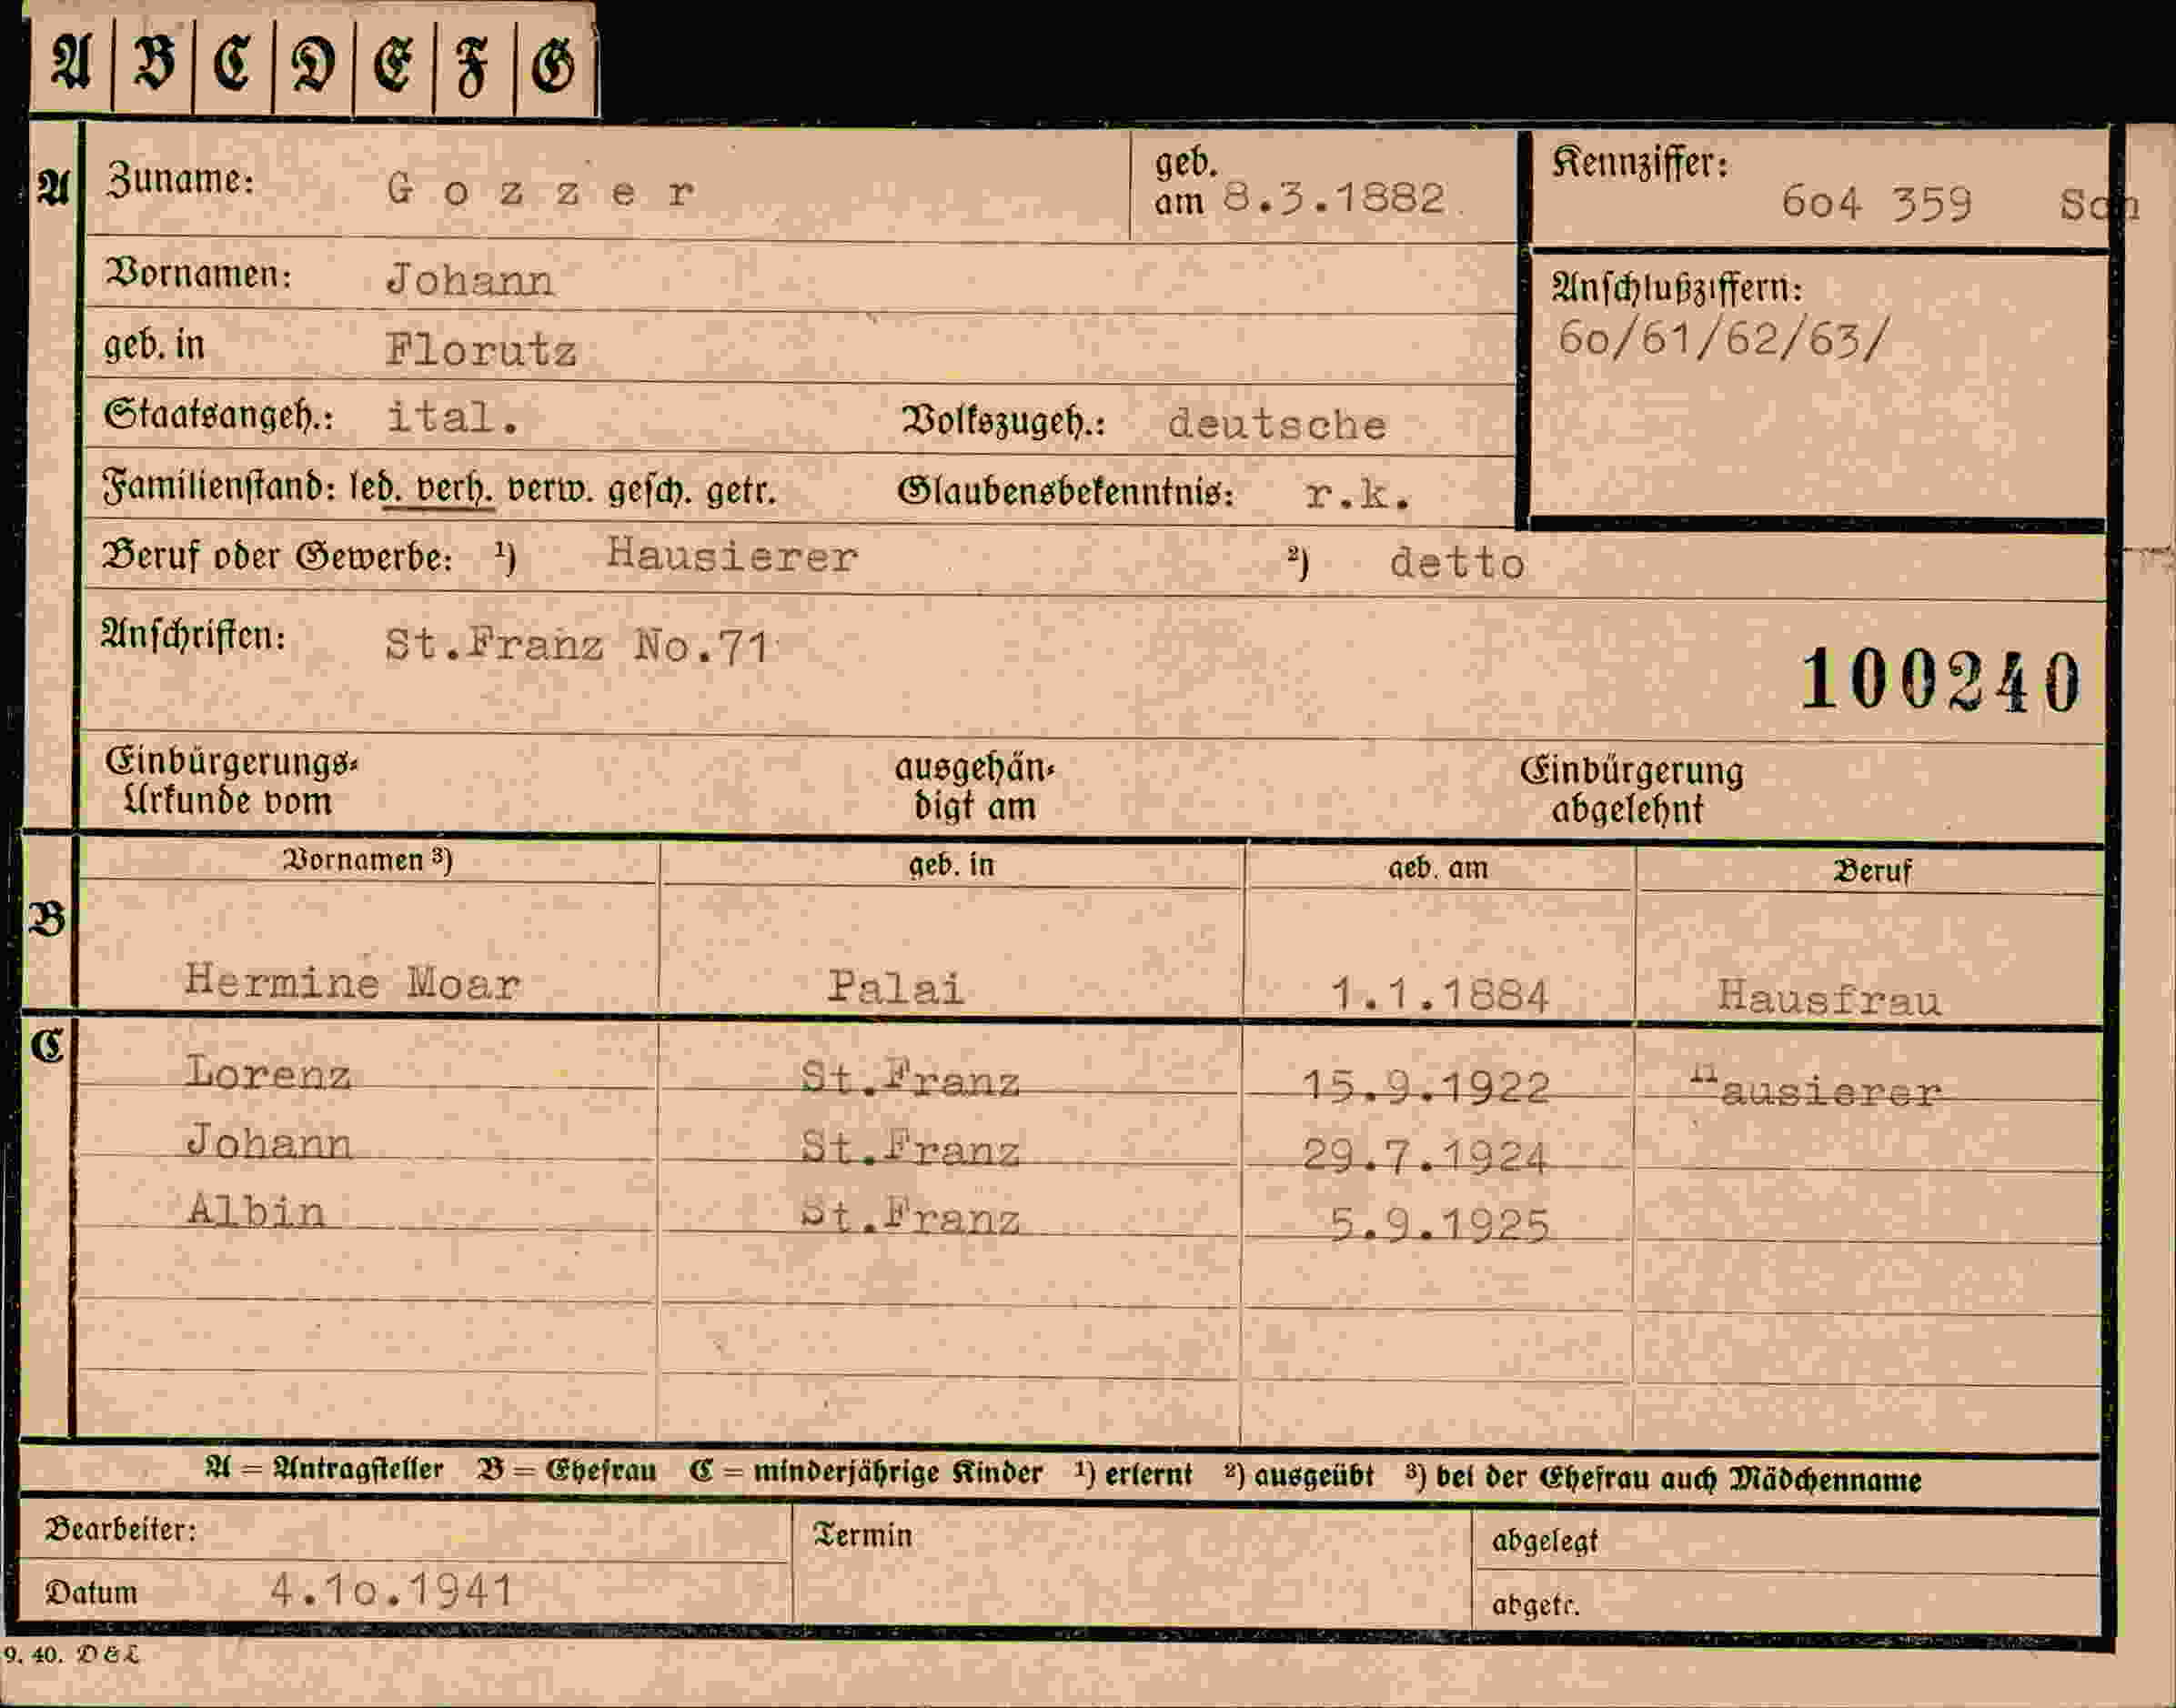 A | B | C | D | E | F | G
A Zuname: Gozzer geb. am 8.3.1882 Kennziffer: 6o4 359 Sch
Vornamen: Johann Anschlußziffern:
geb. in Florutz 6o/61/62/63/
Staatsangeh.: ital. Volkszugeh.: deutsche
Familienstand: led. verh. verw. gesch. getr. Glaubensbekenntnis: r.k.
Beruf oder Gewerbe: ¹) Hausierer ²) detto
Anschriften: St.Franz No.71
100240
Einbürgerungs-Urkunde vom ausgehändigt am Einbürgerung abgelehnt
Vornamen ³) geb. in geb. am Beruf
B
Hermine Moar Palai 1.1.1884 Hausfrau
C
Lorenz St.Franz 15.9.1922 Hausierer
Johann St.Franz 29.7.1924
Albin St.Franz 5.9.1925
A = Antragsteller B = Ehefrau C = minderjährige Kinder ¹) erlernt ²) ausgeübt ³) bei der Ehefrau auch Mädchenname
Bearbeiter: Termin abgelegt
Datum 4.1o.1941 abgetr.
9. 40. D & L